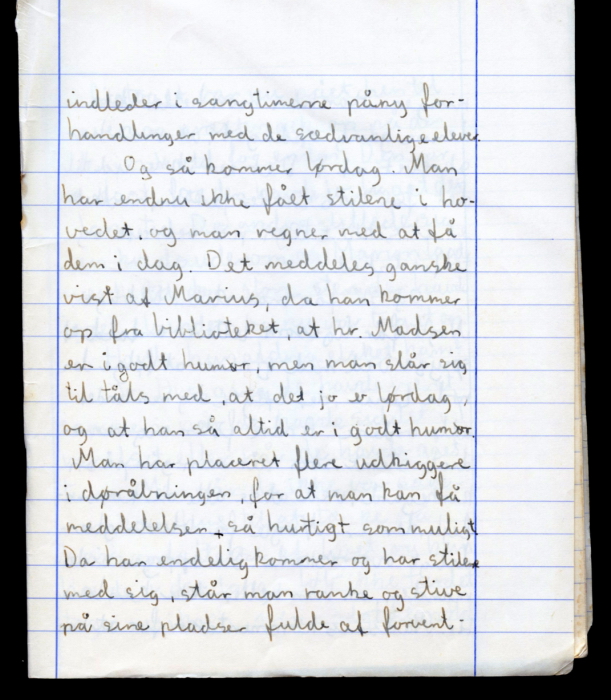 indleder i sangtimerne påny for-
handlinger med de sædvanlige elever.
Og så kommer lørdag. Man
har endnu ikke fået stilene i ho-
vedet, og man regner med at få
dem i dag. Det meddeles ganske
vist af Marius, da han kommer
op fra biblioteket, at hr. Madsen
er i godt humør, men man slår sig
til tåls med, at det jo er lørdag,
og at han så altid er i godt humør.
Man har placeret flere udkiggere
i døråbningen, for at man kan få
meddelelsen så hurtigt som muligt.
Da han endelig kommer og har stilene
med sig, står man ranke og stive
på sine pladser fulde af forvent-